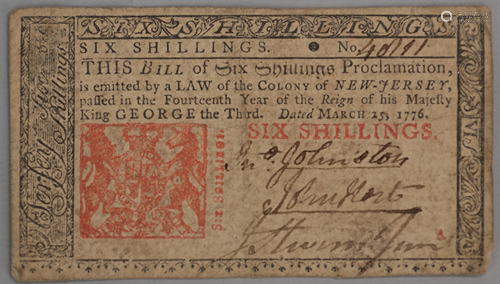 SIX SHILLINGS
SIX SHILLINGS. No.
THIS Bill of Six Shillings Proclamation,
is emitted by a LAW of the Colony of NEW-JERSEY,
passed in the Fourteenth Year of the Reign of his Majesty
King GEORGE the Third. Dated MARCH 25, 1776.
SIX SHILLINGS.
Jno. Johnston
John Hart
Six Shillings.
Jersey
Shillings
VI
A